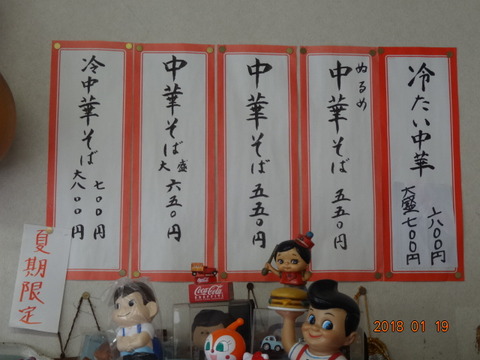 冷たい中華
六〇〇円
大盛七〇〇円
ぬるめ
中華そば 五五〇円
中華そば 五五〇円
中華そば
大盛 六五〇円
冷中華そば 七〇〇円
大八〇〇円
夏期限定
Coca-Cola
2018 01 19